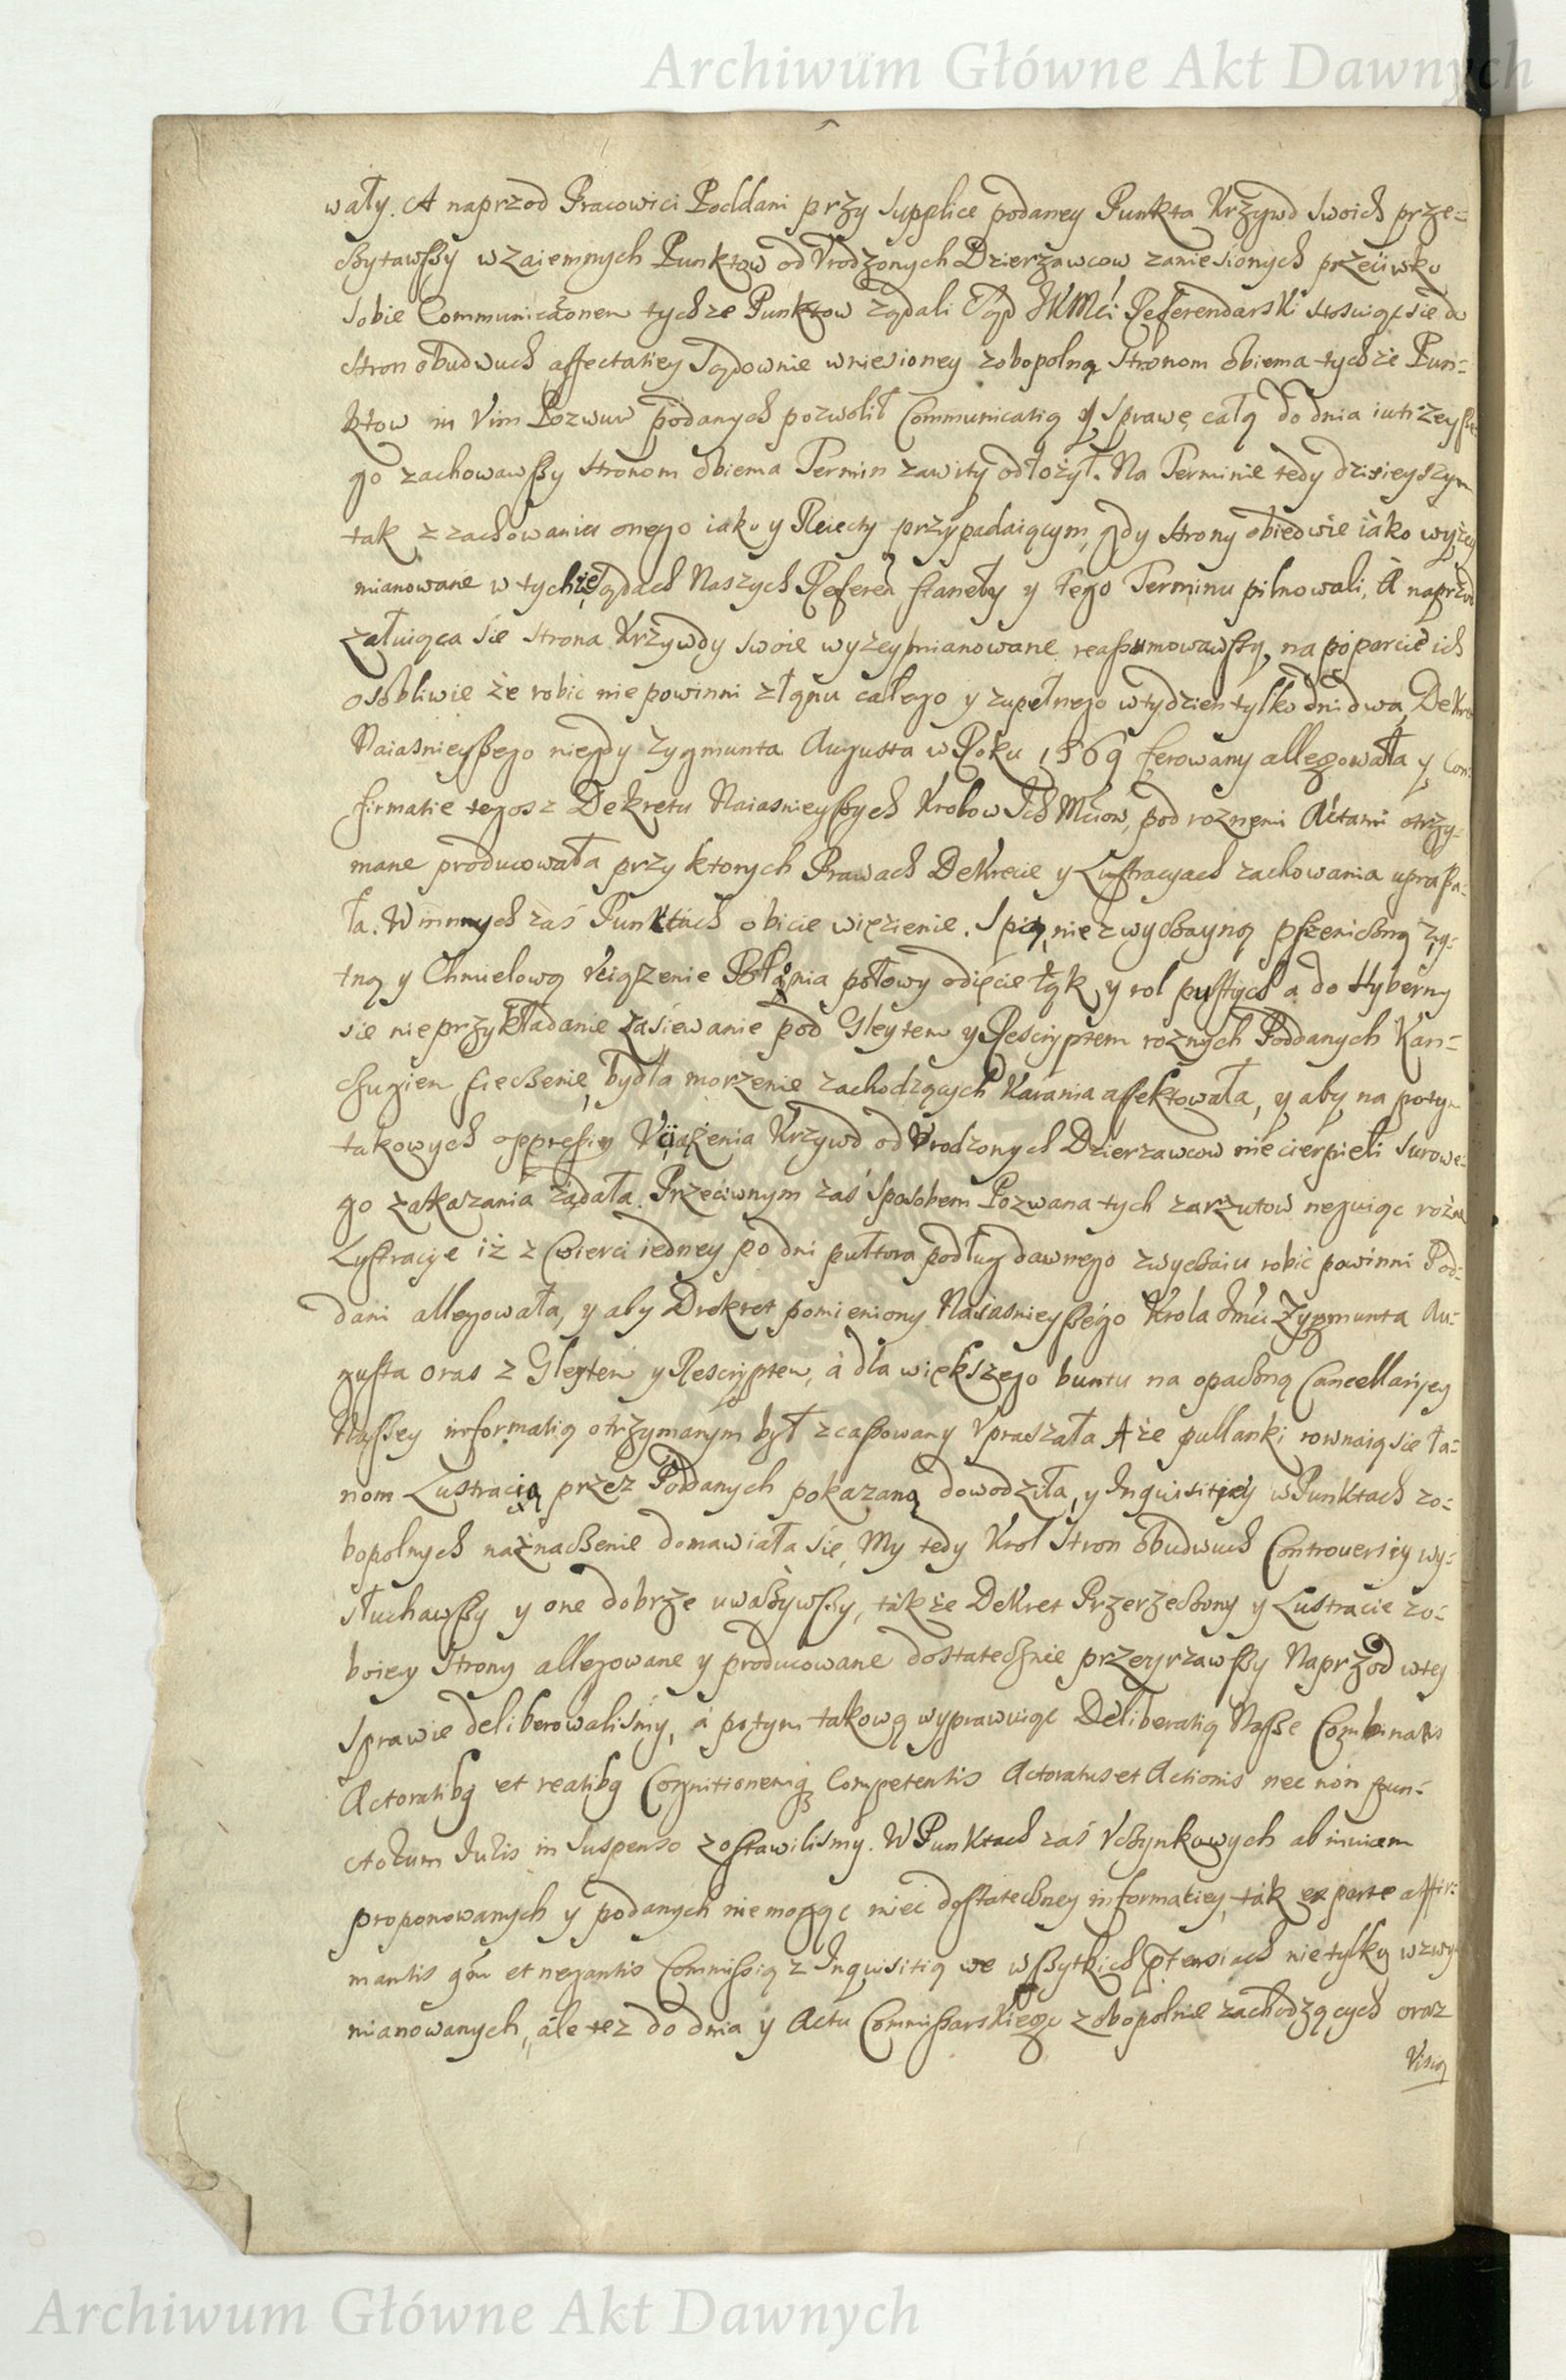 Archiwum Główne Akt Dawnych
wały. A naprzod Pracowici Poddani przy Supplice podaney Punkta Krzywd swoich prze=
czytawszy wzaiemnych Punktow od Vrodzonych Dzierzawcow zaniesionych przeciwko
sobie Communicationem tychze Punktow ządali Sąd JKMci Referendarski stosuiąc sie do
stron obudwuch affectatiey Sądownie wniesioney zobopolną Stronom obiema tychże Pun=
ktow in Vim Pozwuw podanych pozwolił Communicatią y Sprawę całą do dnia iutrzeysze
go zachowawszy stronom obiema Termin zawity odłożył. Na Terminie tedy dzisieyszym
tak z zachowania onego iako y Reiecty przypadaiącym, gdy strony obiedwie iako wyżey
mianowane w tychże Sądach Naszych Referen staneły y tego Terminu pilnowali, A naprzod
załuiąca sie strona Krzywdy swoie wyzeymianowane reassumowawszy, na poparcie ich
osobliwie że robic nie powinni z łanu całego y zupełnego w tydzien tylko dni dwa, Dekret
Naiasnieyszego niegdy Zygmunta Augusta w Roku 1569 ferowany allegowała y Con=
firmatie tegosz Dekretu Naiasnieyszych Krolow Ich Mciow, pod roznemi Actami otrzy=
mane producowała przy ktorych Prawach Dekrecie y Lustracyach zachowania uprasza=
ła. W innych zaś Punktach o bicie więzienie. Spią, niezwyczayną pszeniczną Zy=
tną y Chmielową Vciązenie połowy odięcie łąk y rol pustych a do Hyberny
sie nieprzykładanie zasiewanie pod Gleytem y Rescryptem roznych Poddanych Kan=
czugiem sieczenie, bydła morzenie zachodzących Karania affektowała, y aby na potym
takowych oppressiy Vciążenia Krzywd od Vrodzonych Dzierzawcow nie cierpieli Surowe=
go zakazania żądała. Przeciwnym zaś sposobem Pozwana tych zarzutow neguiąc rożne
Lystracye iż z Cwierci iedney po dni pułtora podług dawnego zwyczaiu robic powinni Pod=
dani allegowała, y aby Drekret pomieniony Naiasnieyszego Krola Jmci Zygmunta Au=
gusta oras z Gleytem y Rescryptem, á dla większego buntu na opaczną Cancellaryey
Naszey informatią otrzymanym był zcassowany Vpraszała A że pułłanki rownaią sie ła=
nom Lustracią przez Poddanych pokazaną dowodziła, y Inquisitiey w Punktach zo=
bopolnych naznaczenie domawiała sie, My tedy Krol Stron obudwuch Controuersiy wy=
słuchawszy y one dobrze uważywszy, także Dekret Przerzeczony y Lustracie zo=
boiey strony allegowane y producowane dostatecznie przeyrzawszy Naprzod w tey
Sprawie deliberowaliśmy, á potym takową wyprawuiąc Deliberatią Nasze Combinatis
Actoratibq et reatibq Cognitionemq Competentis Actoratus et Actionis nec non pun=
ctorum Juris in suspenso zostawilismy. W Punktach zaś Vczynkowych ab inuicem
proponowanych y podanych niemogąc miec dostateczney informatiey, tak ex parte affir=
mantis qm et negantis Commissią z Inquisitią we wszytkich ptensiach nie tylko wzwy
mianowanych, ále tez do dnia y Actu Commissarskiego zobopolnie zachodzących oraz
Visią
Archiwum Główne Akt Dawnych